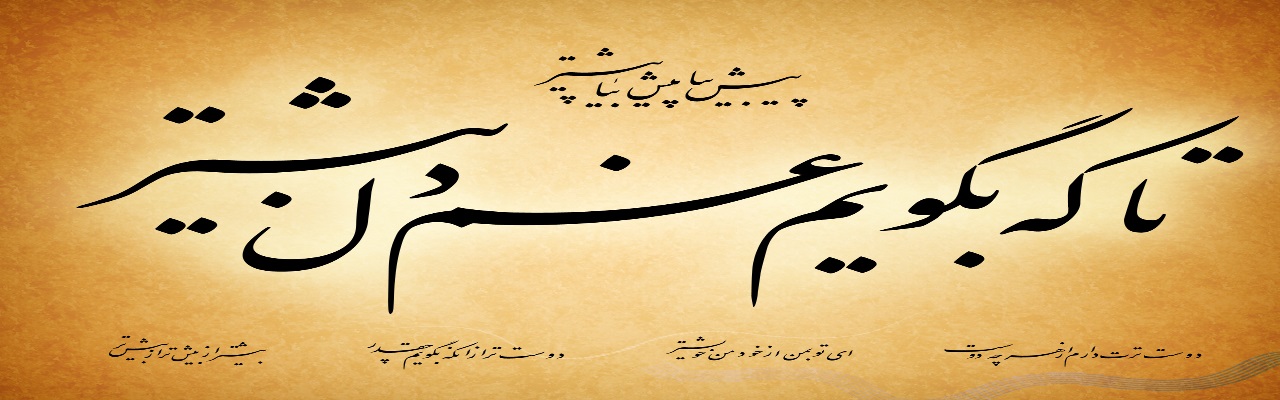 پیش بیا پیش بیا پیشتر
تا که بگویم غم دل بیشتر
دوست ترت دارم از هر چه دوست
ای تو بمن از خود من خویشتر
دوست تر از آنکه بگویم چقدر
بیشتر از بیشتر از بیشتر